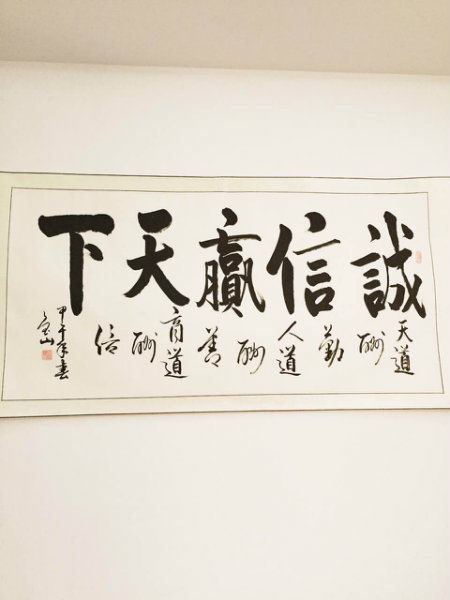 誠信贏天下
天道酬勤人道酬善商道酬信
甲午年春